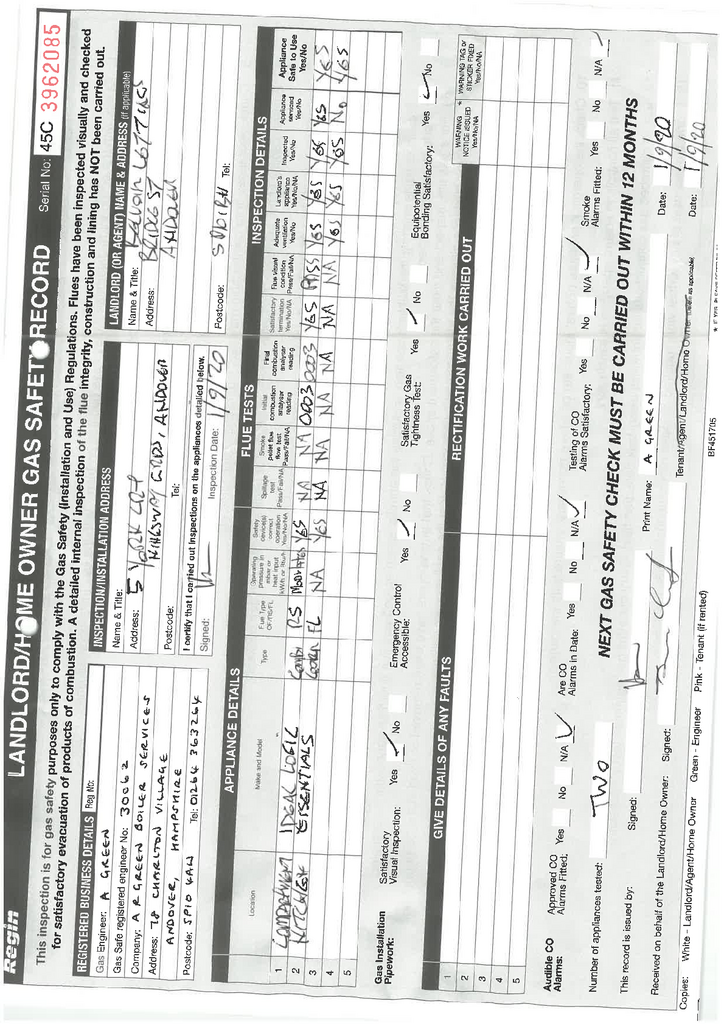 Regin
LANDLORD/HOME OWNER GAS SAFETY RECORD
Serial No: 45C 3962085
This inspection is for gas safety purposes only to comply with the Gas Safety (Installation and Use) Regulations. Flues have been inspected visually and checked
for satisfactory evacuation of products of combustion. A detailed internal inspection of the flue integrity, construction and lining has NOT been carried out.
REGISTERED BUSINESS DETAILS Reg No:
Gas Engineer: A GREEN
Gas Safe registered engineer No: 30062
Company: A R GREEN BOILER SERVICES
Address: 78 CHARLTON VILLAGE
ANDOVER, HAMPSHIRE
Postcode: SP10 4AW Tel: 01264 363264
INSPECTION/INSTALLATION ADDRESS
Name & Title:
Address: 5 YORK
ANDOVER
Postcode: Tel:
I certify that I carried out inspections on the appliances detailed below.
Signed: Inspection Date: 1/9/20
LANDLORD (OR AGENT) NAME & ADDRESS (if applicable)
Name & Title: LETTINGS
Address: BRIDGE ST
ANDOVER
Postcode: Tel:
APPLIANCE DETAILS
FLUE TESTS
INSPECTION DETAILS
Location
Make and Model
Type
Flue Type OF/RS/FL
Operating pressure in mbar or heat input kW/h or Btu/h
Safety device(s) correct operation Yes/No/NA
Spillage test Pass/Fail/NA
Smoke pellet flue flow test Pass/Fail/NA
Initial combustion analyser reading
Final combustion analyser reading
Satisfactory termination Yes/No/NA
Flue visual condition Pass/Fail/NA
Adequate ventilation Yes/No
Landlord's appliance Yes/No/NA
Inspected Yes/No
Appliance serviced Yes/No
Appliance Safe to Use Yes/No
1 IDEAL LOGIC Combi RS YES NA NA 0.003 0.003 YES PASS YES YES YES YES YES
2 KITCHEN ESSENTIALS FL NA YES NA NA NA NA NA NA YES YES YES NO YES
3
4
5
Gas Installation Pipework:
Satisfactory Visual Inspection: Yes ✓ No
Emergency Control Accessible: Yes ✓ No
Satisfactory Gas Tightness Test: Yes ✓ No
Equipotential Bonding Satisfactory: Yes ✓ No
GIVE DETAILS OF ANY FAULTS
RECTIFICATION WORK CARRIED OUT
WARNING NOTICE ISSUED Yes/No/NA
* WARNING TAG or STICKER FIXED Yes/No/NA
1
2
3
4
5
Audible CO Alarms:
Approved CO Alarms Fitted: Yes No N/A ✓
Are CO Alarms in Date: Yes No N/A ✓
Testing of CO Alarms Satisfactory: Yes No N/A ✓
Smoke Alarms Fitted: Yes No N/A ✓
Number of appliances tested: TWO
NEXT GAS SAFETY CHECK MUST BE CARRIED OUT WITHIN 12 MONTHS
This record is issued by: Signed: Print Name: A GREEN Date: 1/9/20
Received on behalf of the Landlord/Home Owner: Signed: Tenant/Agent/Landlord/Home Owner Date: 1/9/20
Copies: White - Landlord/Agent/Home Owner Green - Engineer Pink - Tenant (if rented)
BF451705